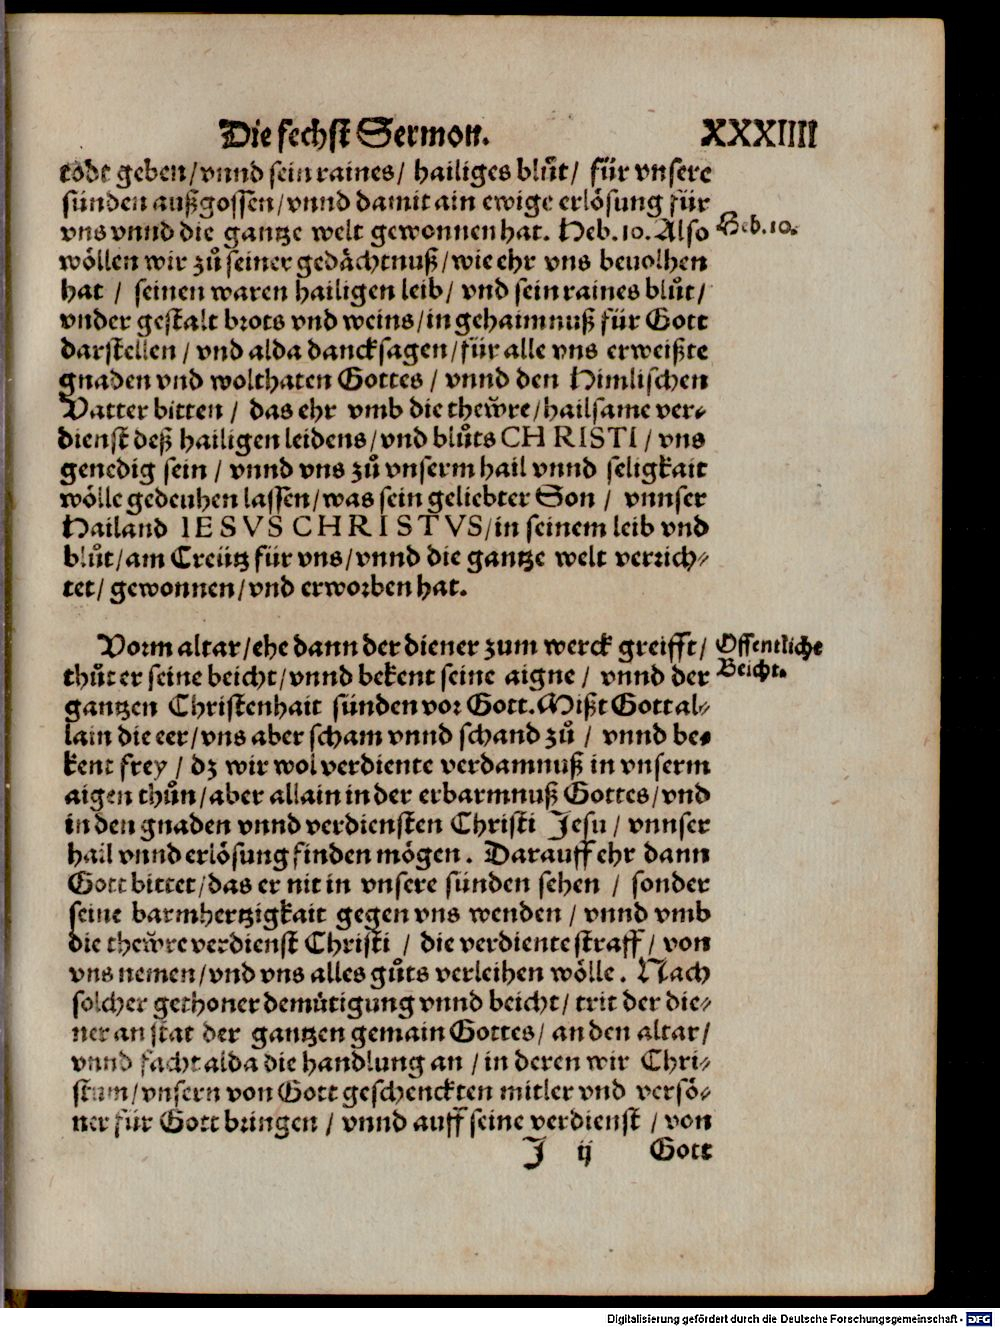 Die sechst Sermon. XXXIIII
tödt geben/vnnd sein raines/ hailiges blůt/ für vnsere
sünden außgossen/vnnd damit ain ewige erlösung für
vns vnnd die gantze welt gewonnen hat. Heb.10. Also
Heb.10.
wöllen wir zů seiner gedächtnuß/wie ehr vns beuolhen
hat / seinen waren hailigen leib/ vnd sein raines blůt/
vnder gestalt brots vnd weins/in gehaimnuß für Gott
darstellen/vnd alda dancksagen/für alle vns erweißte
gnaden vnd wolthaten Gottes / vnnd den Himlischen
Vatter bitten / das ehr vmb die thewͤre/hailsame ver-
dienst deß hailigen leidens/vnd blůts CHRISTI/ vns
genedig sein / vnnd vns zů vnserm hail vnnd seligkait
wölle gedeuhen lassen/was sein geliebter Son / vnnser
Hailand IESVS CHRISTVS/in seinem leib vnd
blůt/am Creütz für vns/vnnd die gantze welt verrich-
tet/ gewonnen/vnd erworben hat.
Vorm altar/ehe dann der diener zum werck greifft/
Offentliche
Beicht.
thůt er seine beicht/vnnd bekent seine aigne / vnnd der
gantzen Christenhait sünden vor Gott. Mißt Gott al-
lain die eer/vns aber scham vnnd schand zů / vnnd be-
kent frey / dz wir wol verdiente verdamnuß in vnserm
aigen thůn/aber allain in der erbarmnuß Gottes/vnd
in den gnaden vnnd verdiensten Christi Jesu / vnnser
hail vnnd erlösung finden mögen. Darauff ehr dann
Gott bittet/das er nit in vnsere sünden sehen / sonder
seine barmhertzigkait gegen vns wenden / vnnd vmb
die thewͤre verdienst Christi / die verdiente straff/ von
vns nemen/vnd vns alles gůts verleihen wölle. Nach
solcher gethoner demütigung vnnd beicht/ trit der die-
ner an stat der gantzen gemain Gottes/ an den altar/
vnnd facht alda die handlung an / in deren wir Chri-
stum/vnsern von Gott geschenckten mitler vnd versö-
ner für Gott bringen / vnnd auff seine verdienst / von
J ij Gott
Digitalisierung gefördert durch die Deutsche Forschungsgemeinschaft - DFG